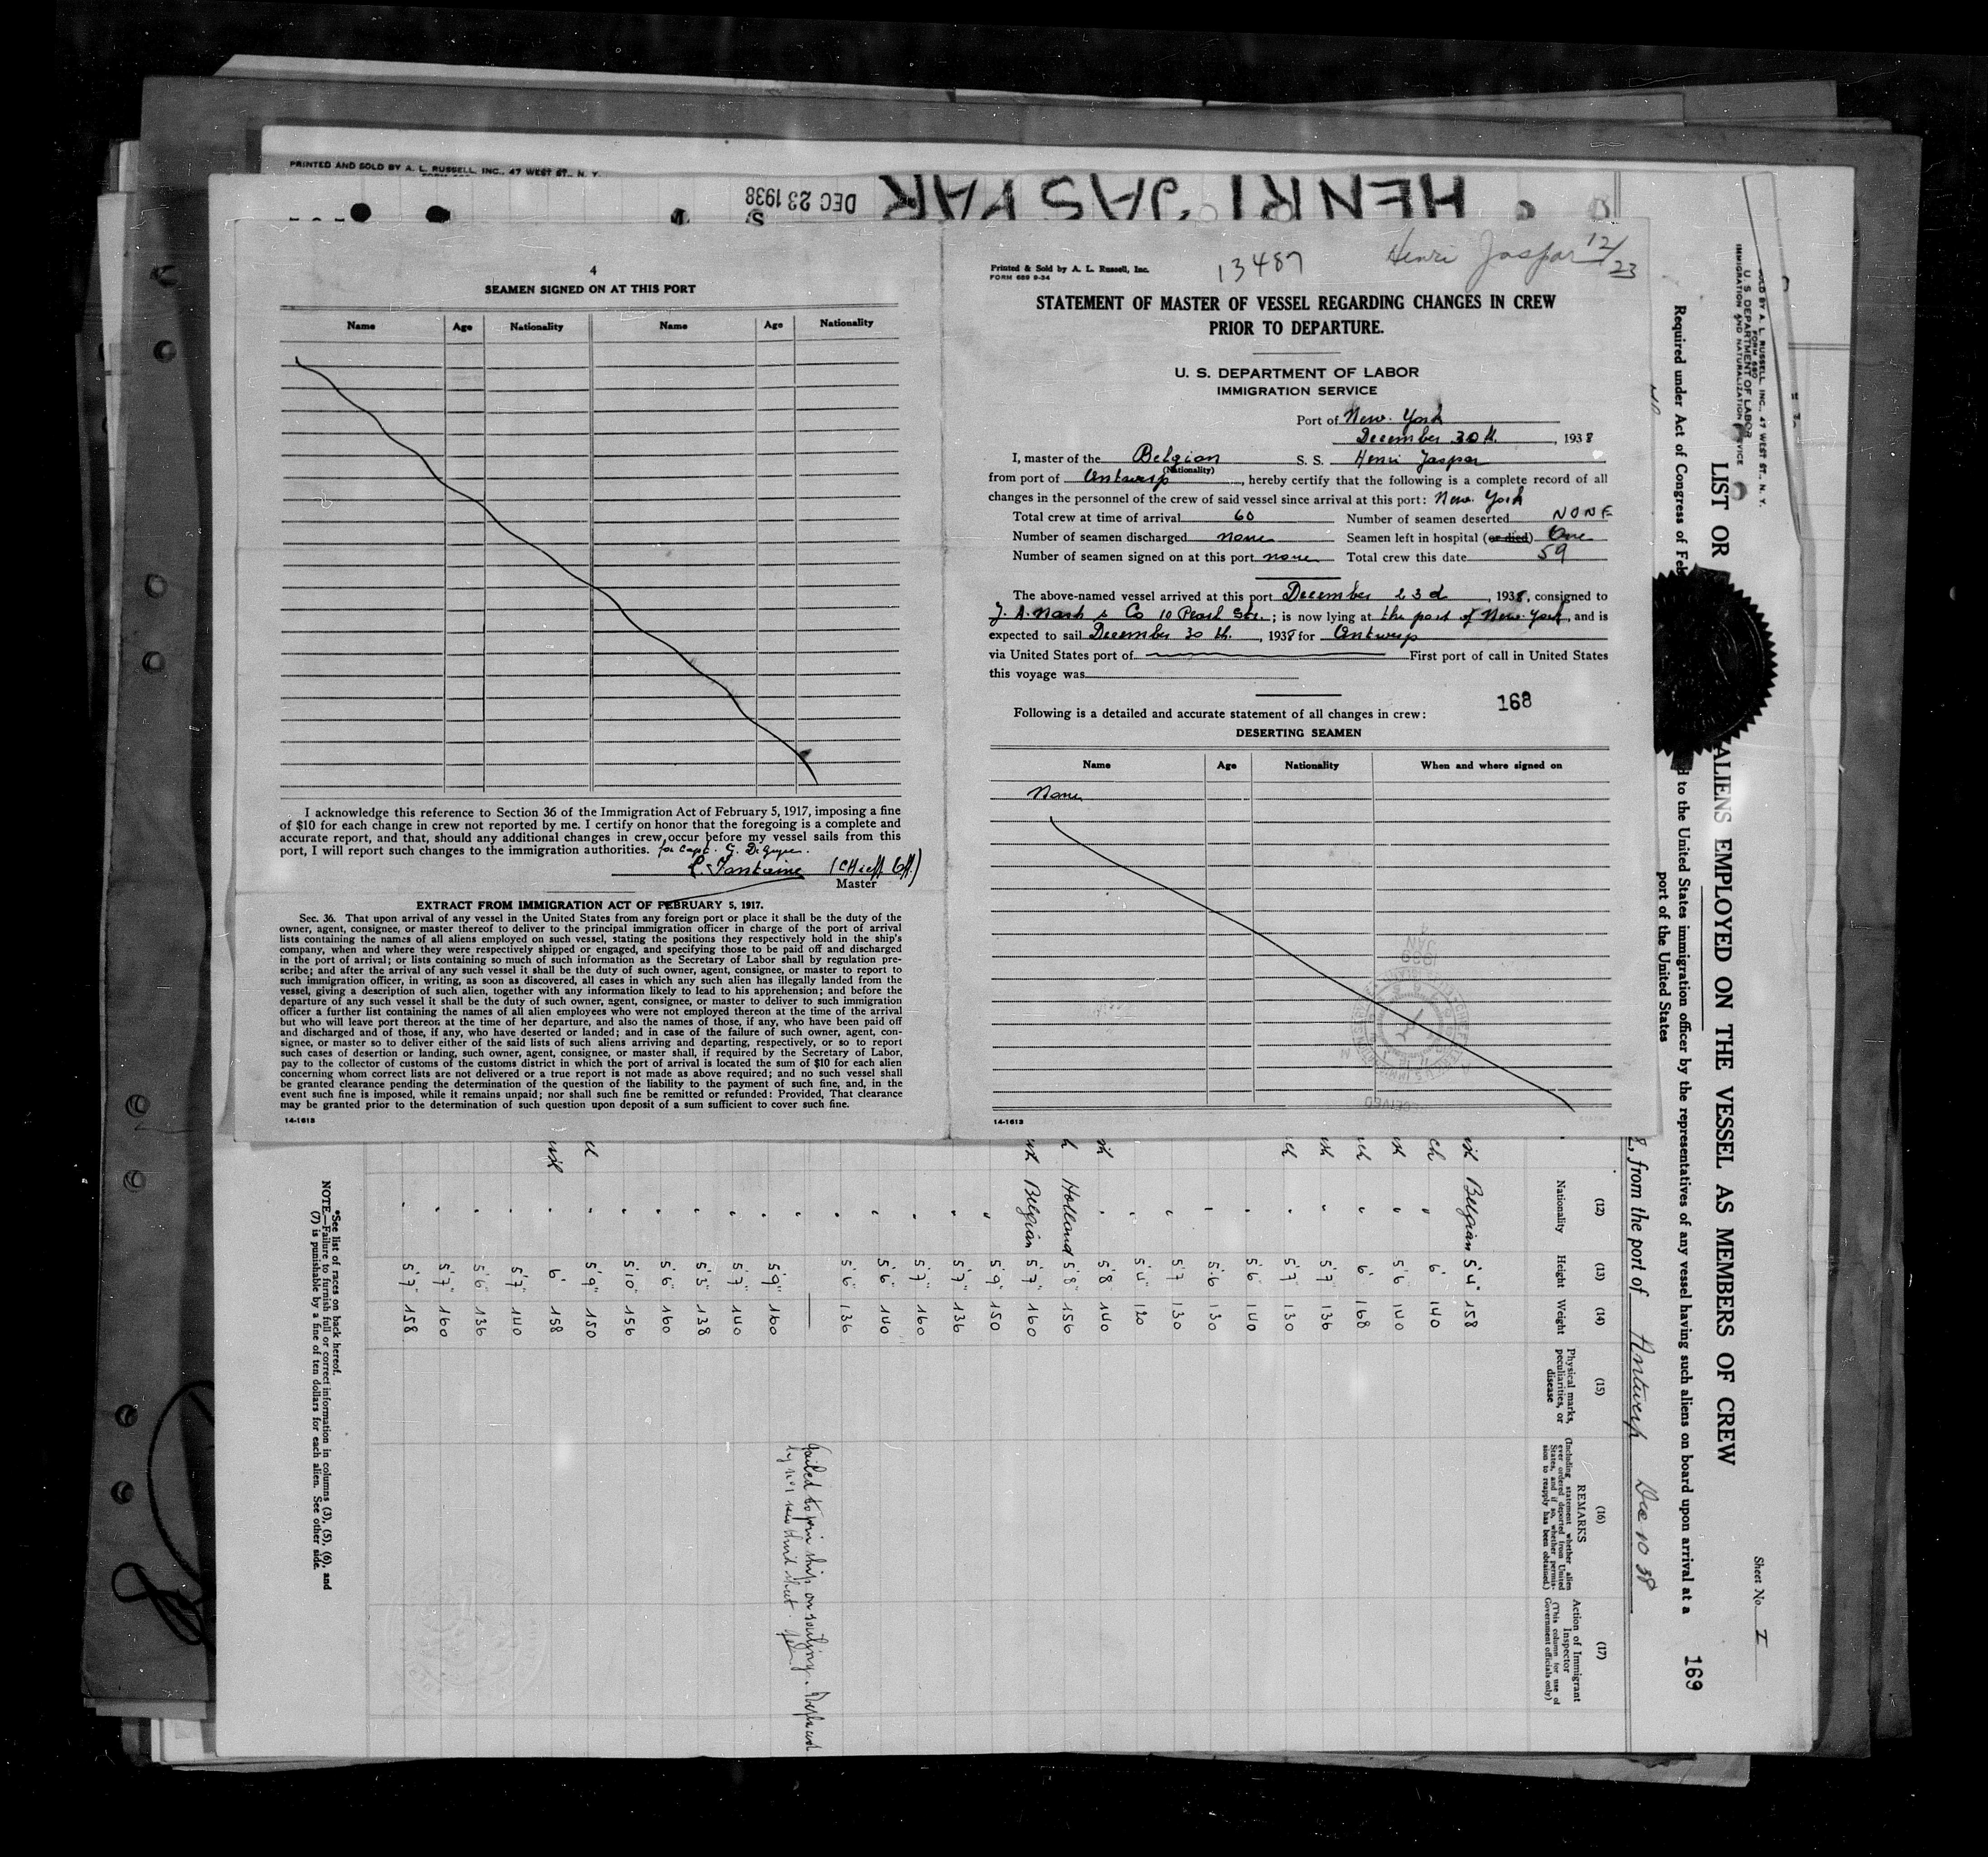 PRINTED AND SOLD BY A. L. RUSSELL, INC., 47 WEST ST., N. Y.
HENRI JASPAR
DEC 23 1938
4
SEAMEN SIGNED ON AT THIS PORT
Name Age Nationality Name Age Nationality
I acknowledge this reference to Section 36 of the Immigration Act of February 5, 1917, imposing a fine
of $10 for each change in crew not reported by me. I certify on honor that the foregoing is a complete and
accurate report, and that, should any additional changes in crew occur before my vessel sails from this
port, I will report such changes to the immigration authorities. for Capt. G.
L. Fontaine (Chieff Off.)
Master
EXTRACT FROM IMMIGRATION ACT OF FEBRUARY 5, 1917.
Sec. 36. That upon arrival of any vessel in the United States from any foreign port or place it shall be the duty of the
owner, agent, consignee, or master thereof to deliver to the principal immigration officer in charge of the port of arrival
lists containing the names of all aliens employed on such vessel, stating the positions they respectively hold in the ship's
company, when and where they were respectively shipped or engaged, and specifying those to be paid off and discharged
in the port of arrival; or lists containing so much of such information as the Secretary of Labor shall by regulation pre-
scribe; and after the arrival of any such vessel it shall be the duty of such owner, agent, consignee, or master to report to
such immigration officer, in writing, as soon as discovered, all cases in which any such alien has illegally landed from the
vessel, giving a description of such alien, together with any information likely to lead to his apprehension; and before the
departure of any such vessel it shall be the duty of such owner, agent, consignee, or master to deliver to such immigration
officer a further list containing the names of all alien employees who were not employed thereon at the time of the arrival
but who will leave port thereon at the time of her departure, and also the names of those, if any, who have been paid off
and discharged and of those, if any, who have deserted or landed; and in case of the failure of such owner, agent, con-
signee, or master so to deliver either of the said lists of such aliens arriving and departing, respectively, or so to report
such cases of desertion or landing, such owner, agent, consignee, or master shall, if required by the Secretary of Labor,
pay to the collector of customs of the customs district in which the port of arrival is located the sum of $10 for each alien
concerning whom correct lists are not delivered or a true report is not made as above required; and no such vessel shall
be granted clearance pending the determination of the question of the liability to the payment of such fine, and, in the
event such fine is imposed, while it remains unpaid; nor shall such fine be remitted or refunded: Provided, That clearance
may be granted prior to the determination of such question upon deposit of a sum sufficient to cover such fine.
14-1613
Printed & Sold by A. L. Russell, Inc.
FORM 689 9-34
13487
Henri Jaspar 12/23
STATEMENT OF MASTER OF VESSEL REGARDING CHANGES IN CREW
PRIOR TO DEPARTURE.
U. S. DEPARTMENT OF LABOR
IMMIGRATION SERVICE
Port of New. York
December 30th, 1938
I, master of the Belgian S. S. Henri Jaspar
(Nationality)
from port of Antwerp, hereby certify that the following is a complete record of all
changes in the personnel of the crew of said vessel since arrival at this port: New. York
Total crew at time of arrival 60 Number of seamen deserted NONE
Number of seamen discharged none Seamen left in hospital (or died) One
Number of seamen signed on at this port none Total crew this date 59
The above-named vessel arrived at this port December 23d, 1938, consigned to
J. A. Nash & Co 10 Pearl Str.; is now lying at the port of New. York, and is
expected to sail December 30th, 1938 for Antwerp
via United States port of First port of call in United States
this voyage was
168
Following is a detailed and accurate statement of all changes in crew:
DESERTING SEAMEN
Name Age Nationality When and where signed on
None
14-1613
SOLD BY A. L. RUSSELL, INC., 47 WEST ST., N. Y.
FORM 680
U. S. DEPARTMENT OF LABOR
IMMIGRATION AND NATURALIZATION SERVICE
Sheet No. I
LIST OR ALIENS EMPLOYED ON THE VESSEL AS MEMBERS OF CREW
169
Required under Act of Congress of Feb to the United States immigration officer by the representatives of any vessel having such aliens on board upon arrival at a
port of the United States
, from the port of Antwerp Dec 10 38
(12) (13) (14) (15) (16) (17)
Nationality Height Weight Physical marks, peculiarities, or disease
REMARKS
(Including statement whether alien ever ordered deported from United States, and if so, whether permission to reapply has been obtained.)
Action of Immigrant Inspector
(This column for use of Government officials only)
Belgian 5'4" 158
" 6' 140
" 5'6 140
" 6' 168
" 5'7" 136
" 5'7" 130
" 5'6" 140
" 5'6 130
" 5'7 130
" 5'4" 120
" 5'8" 140
Holland 5'8" 156
Belgian 5'7" 160
" 5'9" 150
" 5'7" 136
" 5'7" 160
" 5'6" 140
" 5'6" 136
" — Failed to join ship on sailing. Replaced
by no 1 see third sheet.
" 5'9" 160
" 5'7" 140
" 5'5" 138
" 5'6" 160
" 5'10" 156
" 5'9" 150
" 6' 158
" 5'7" 140
" 5'6" 136
" 5'7" 160
" 5'7" 158
*See list of races on back hereof.
NOTE.—Failure to furnish full or correct information in columns (3), (5), (6), and
(7) is punishable by a fine of ten dollars for each alien. See other side.